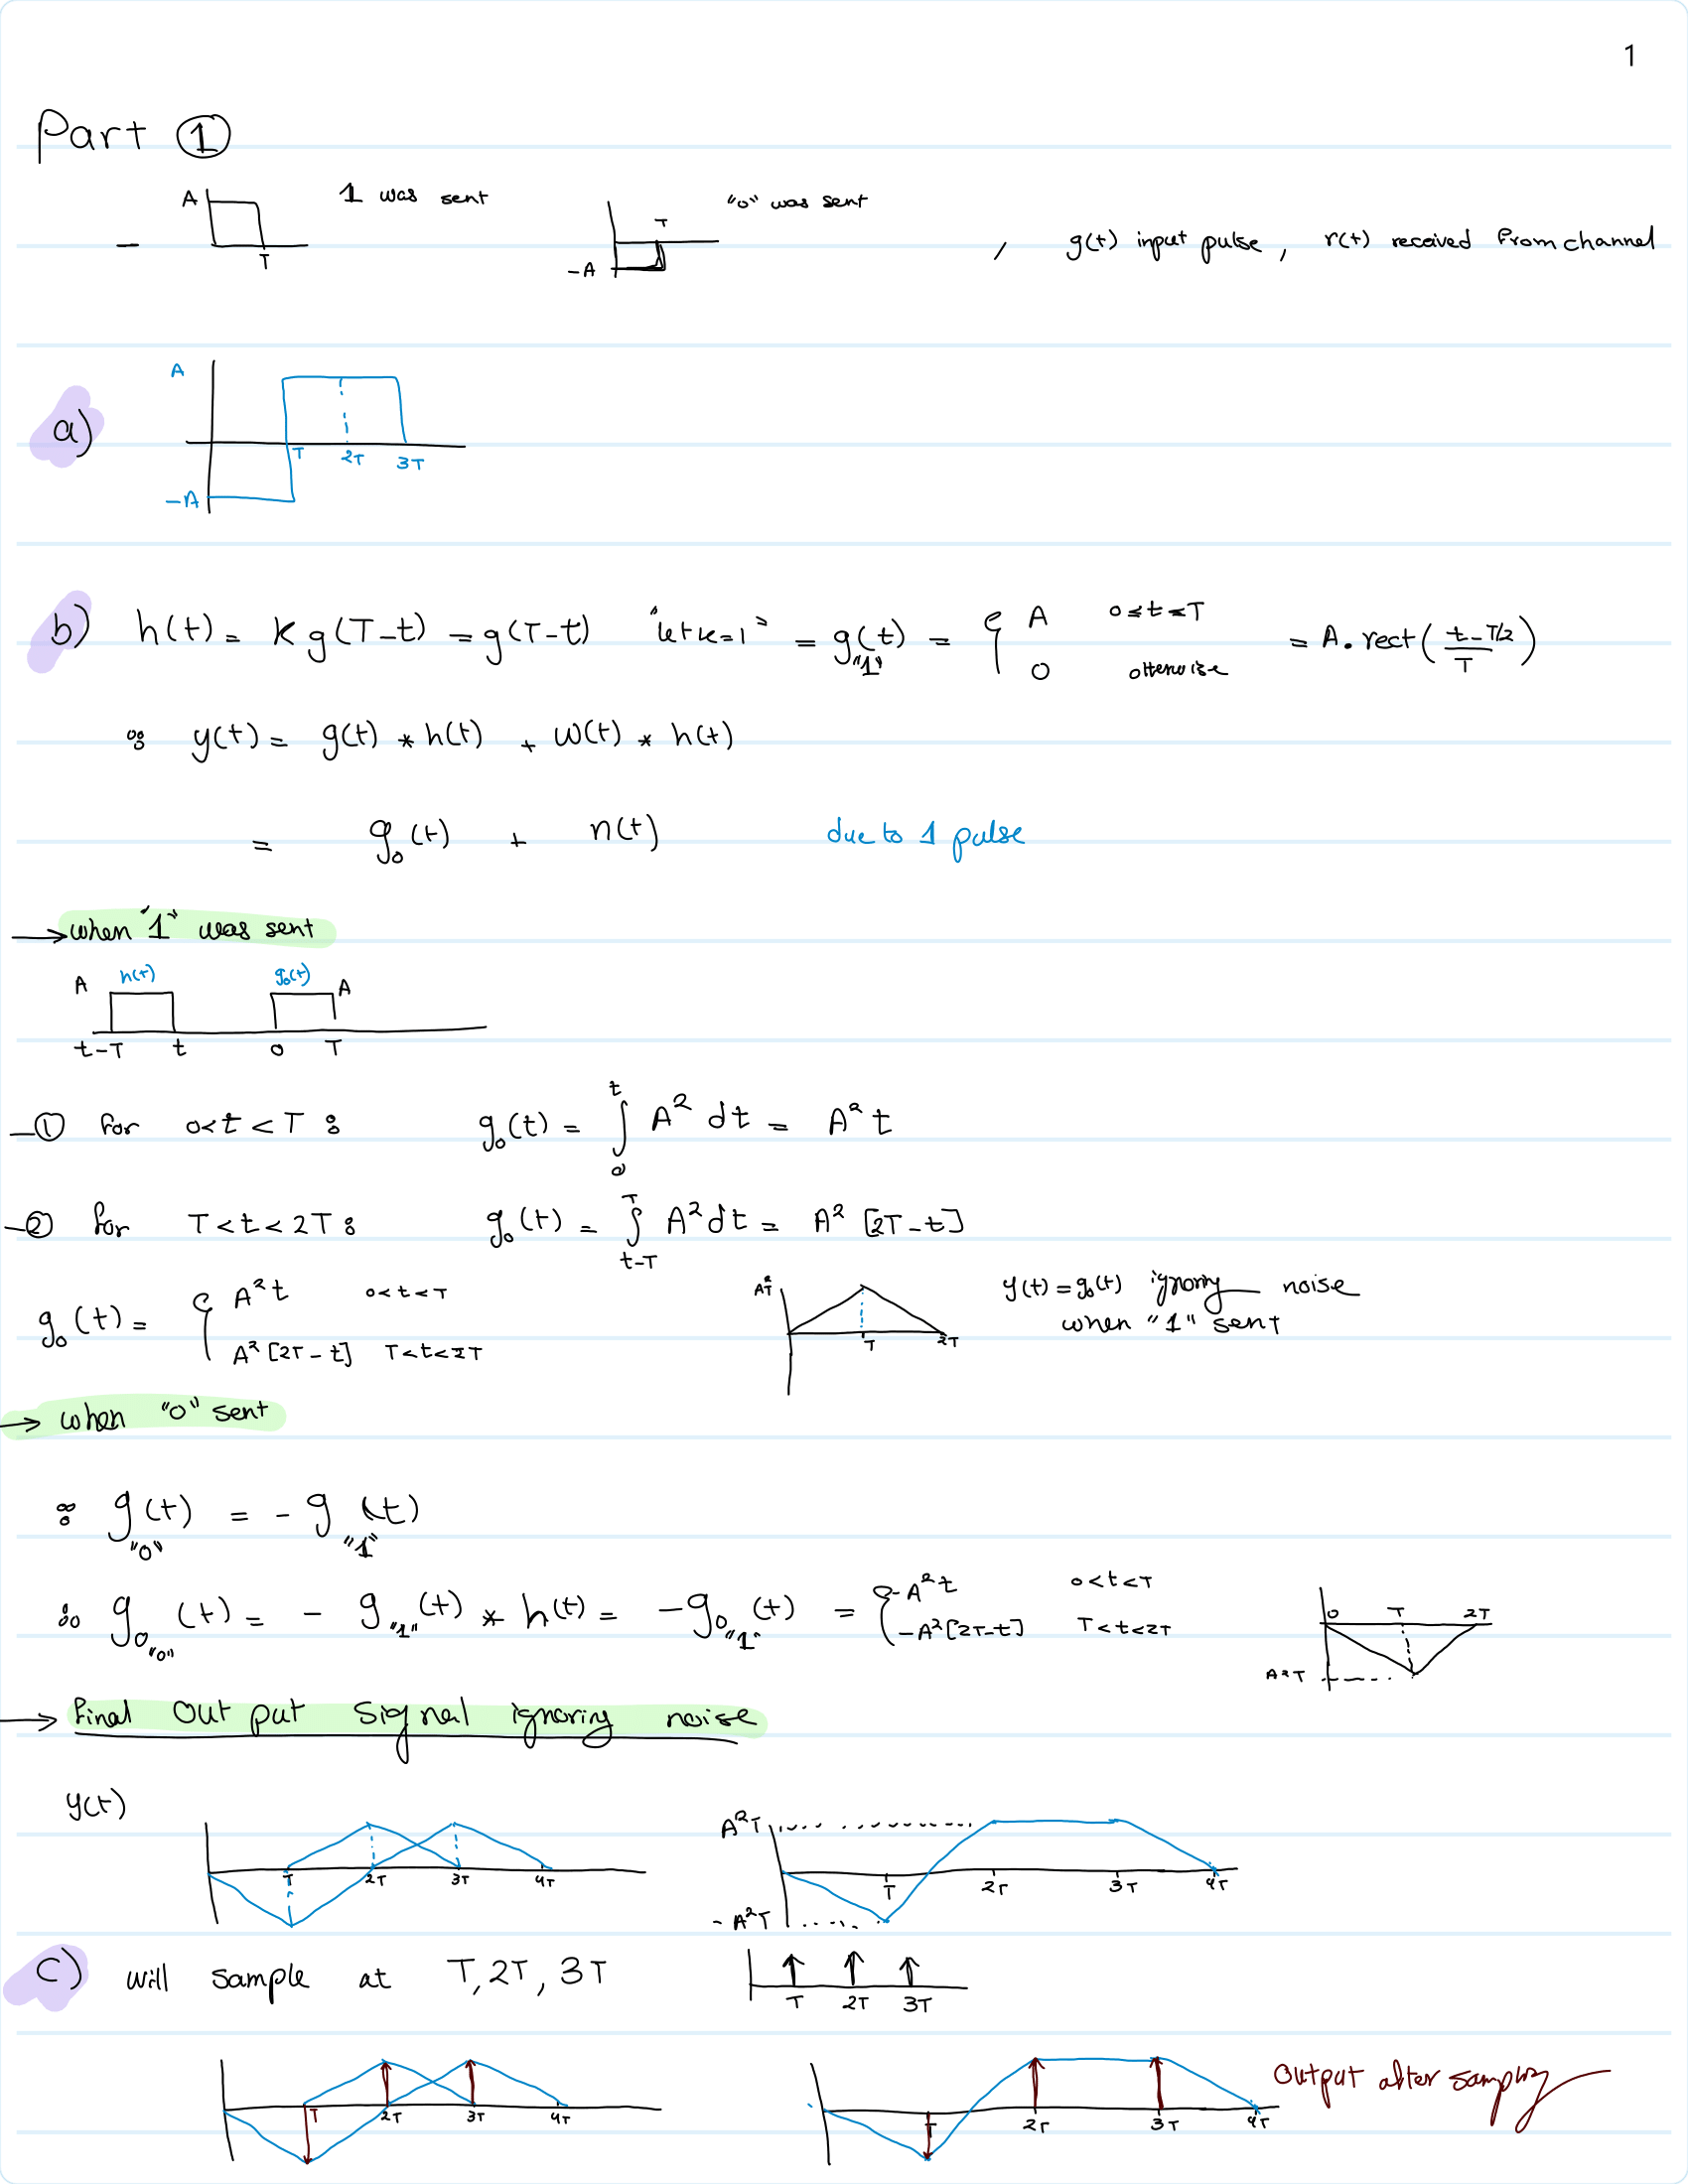 1
Part ①
A T 1 was sent T -A "0" was sent , g(t) input pulse, r(t) received from channel
a) A -A T 2T 3T
b) h(t) = K g(T-t) = g(T-t) "let k=1" = g"1"(t) = { A 0≤t≤T = A.rect((t-T/2)/T)
0 otherwise
∵ y(t) = g(t) * h(t) + w(t) * h(t)
= g₀(t) + n(t) due to 1 pulse
→ when "1" was sent
A h(t) g₀(t) A
t-T t 0 T
-① for 0<t<T : g₀(t) = ∫₀ᵗ A² dt = A² t
-② for T<t<2T : g₀(t) = ∫ₜ₋ₜᵀ A² dt = A² [2T-t]
g₀(t) = { A² t 0<t<T
A² [2T-t] T<t<2T
A²T T 2T
y(t) = g₀(t) ignoring noise
when "1" sent
→ when "0" sent
∵ g"0"(t) = - g"1"(t)
∴ g₀"0"(t) = - g"1"(t) * h(t) = -g₀"1"(t) = { -A² t 0<t<T
-A² [2T-t] T<t<2T
0 T 2T
A²T
→ final output signal ignoring noise
y(t)
T 2T 3T 4T
A²T -A²T T 2T 3T 4T
c) will sample at T, 2T, 3T T 2T 3T
T 2T 3T 4T
T 2T 3T 4T output after sampling